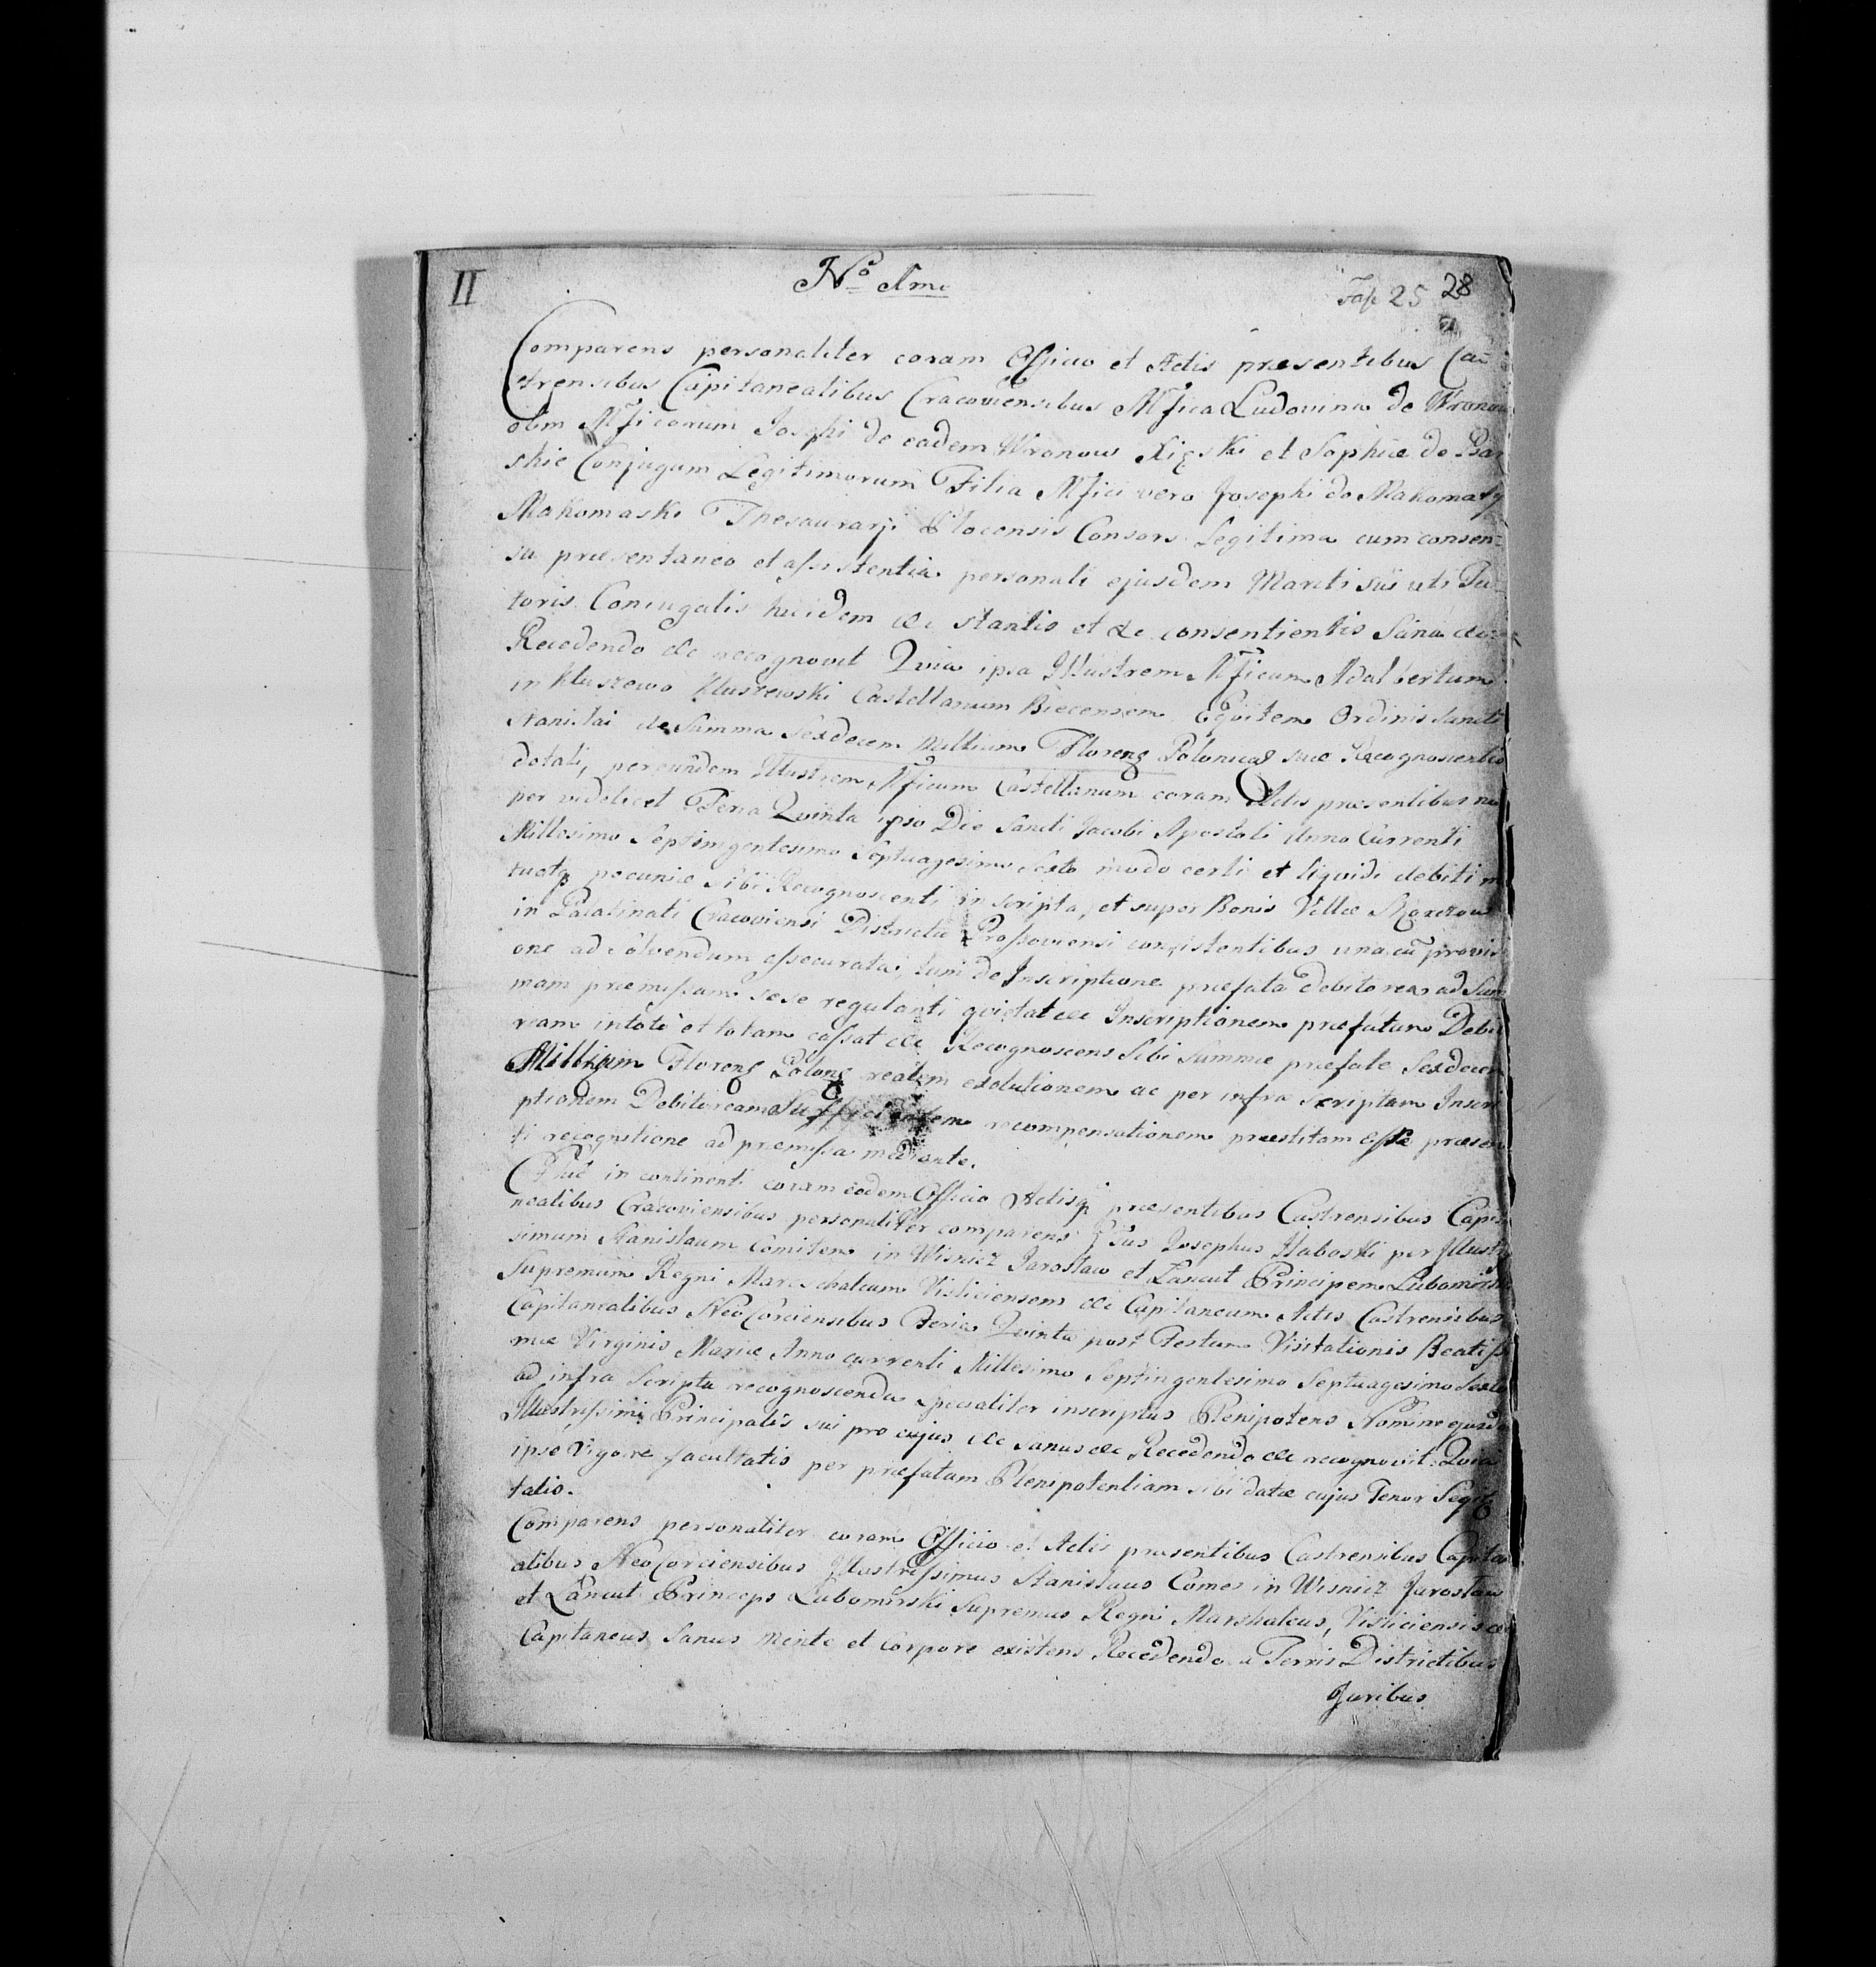 II
No 1mo
Fasc 25 28
Comparens personaliter coram Officio et Actis præsentibus Ca
strensibus Capitanealibus Cracoviensibus Mfica Ludovina de Wronow
olim Mficorum Josephi de eadem Wronow Xięski et Sophiæ de
skie Conjugum Legitimorum Filia Mfici vero Josephi de Makomasy
Makomaski Thesaurarji Plocensis Consors Legitima cum consen=
su præsentaneo et assistentia personali ejusdem Mariti sui uti Tu=
toris Conjugalis ibidem &c stantis et &c consentientis Sana &c
Recedendo &c recognovit Quia ipsa Illustrem Mficum Adalbertum
in Kluszewo Kluszewski Castellanum Biecensem Equitem Ordinis Sancti
Stanislai de Summa Sexdecem Millium Floreng Polonicag suæ Recognoscentis
dotali, per eundem Illustrem Mficum Castellanum coram Actis præsentibus nu
per videlicet Feria Quinta ipso Die Sancti Jacobi Apostoli Anno Currenti
Millesimo Septingentesimo Septuagesimo Sexto modo certi et liquidi debiti m
tuatæ pecuniæ sibi Recognoscenti inscripta, et super Bonis Villæ
in Palatinatu Cracoviensi Districtu Prossoviensi consistentibus una cū provisi
one ad solvendum assecurata, tum de Inscriptione præfata Debitorea ad Sum
mam præmissam sese regulanti quietat &c Inscriptionem præfatam Debito
ream in toto et totam cassat &c Recognoscens Sibi Summæ præfatæ Sexdecem
Millium Floreng Polong realem exolutionem ac per infra scriptam Inscri
ptionem Debitoream Sufficientem recompensationem præstitam esse præsen
ti recognitione ad præmissa mediante.
in continenti coram eodem Officio Actisq præsentibus Castrensibus Capita
nealibus Cracoviensibus personaliter comparens Gsus Josephus Haboski per Illustris
simum Stanislaum Comitem in Wisnicz Jaroslaw et Łancut Principem Lubomirski
Supremum Regni Mareschalcum Visliciensem &c Capitaneum Actis Castrensibus
Capitanealibus NeoCorciensibus Feria Quinta post Festum Visitationis Beatissi
mæ Virginis Mariæ Anno currenti Millesimo Septingentesimo Septuagesimo Sexto
ad infra Scripta recognoscenda specialiter inscriptus Plenipotens Nomine ejusdem
Illustrissimi Principalis sui pro cujus &c Sanus &c Recedendo &c recognovit Quia
ipse Vigore facultatis per præfatam Plenipotentiam sibi datæ cujus Tenor Sequitur
talis.
Comparens personaliter coram Officio et Actis præsentibus Castrensibus Capitane
alibus NeoCorciensibus Illustrissimus Stanislaus Comes in Wisnicz Jaroslaw
et Łancut Princeps Lubomirski Supremus Regni Marshalcus, Visliciensis &c
Capitaneus Sanus mente et Corpore existens Recedendo a Terris Districtibus
Juribus